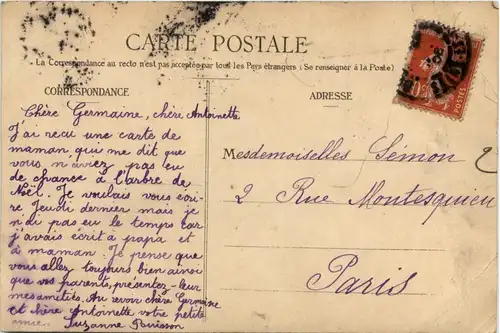 CARTE POSTALE
La Correspondance au recto n'est pas acceptée par tout les Pays étrangers (Se renseigner à la Poste)
CORRESPONDANCE
ADRESSE
Chère Germaine, chère Antoinette
J'ai reçu une carte de
maman qui me dit que
vous n'aviez pas eu
de chance à l'arbre de
Noël. Je voulais vous ecri-
re Jeudi dernier mais je
n'di pas eu le temps car
j'avais écrit à papa et
à maman. Je pense que
vous allez toujours bien ainsi
que vos parents, présentez-leur
mes amitiés. Au revoir chère Germaine
et chère Antoinette votre petite
amie. Suzanne
Mesdemoiselles Sémon
2 Rue Montesquieu
Paris
2
10
POSTES